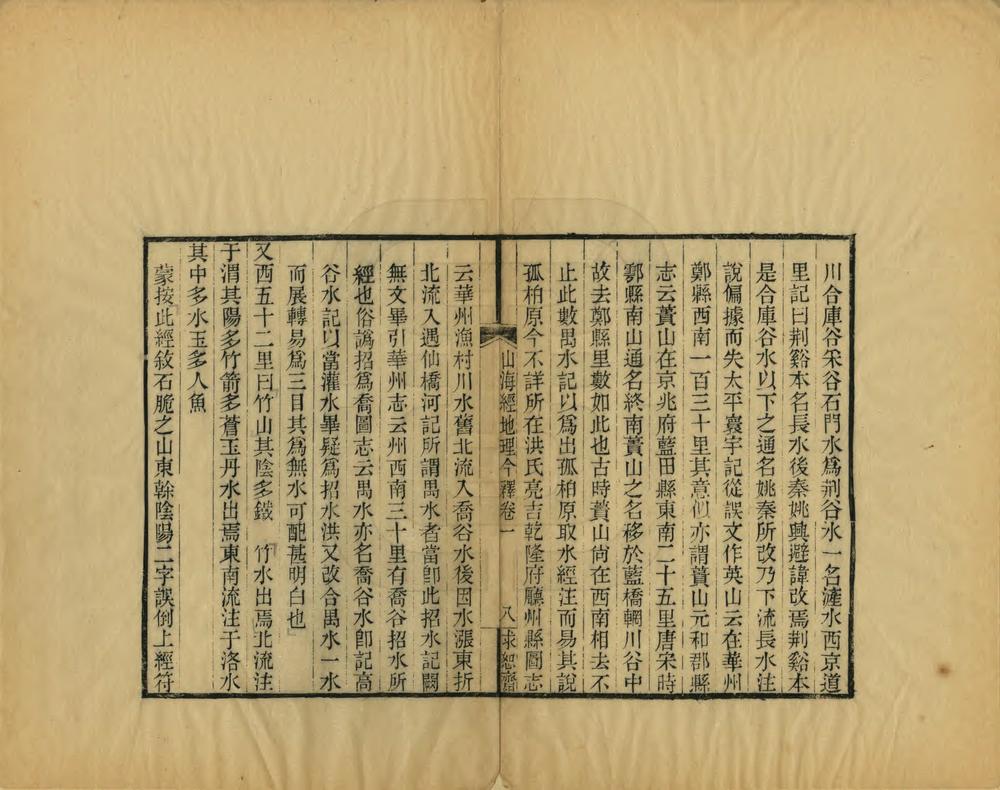 川合庫谷采谷石門水爲荆谷水一名滻水西京道
里記曰荆谿本名長水後秦姚興避諱改焉荆谿本
是合庫谷水以下之通名姚秦所改乃下流長水注
說偏據而失太平寰宇記從誤文作英山云在華州
鄭縣西南一百三十里其意似亦謂蕢山元和郡縣
志云蕢山在京兆府藍田縣東南二十五里唐宋時
鄠縣南山通名終南蕢山之名移於藍橋輞川谷中
故去鄭縣里數如此也古時蕢山尙在西南相去不
止此數禺水記以爲出孤柏原取水經注而易其說
孤柏原今不詳所在洪氏亮吉乾隆府廳州縣圖志
山海經地理今釋卷一 八 求恕齋
云華州漁村川水舊北流入喬谷水後因水漲東折
北流入遇仙橋河記所謂禺水者當卽此招水記闕
無文畢引華州志云州西南三十里有喬谷招水所
經也俗譌招爲喬圖志云禺水亦名喬谷水卽記高
谷水記以當灌水畢疑爲招水洪又改合禺水一水
而展轉易爲三目其爲無水可配甚明白也
又西五十二里曰竹山其陰多鐵 竹水出焉北流注
于渭其陽多竹箭多蒼玉丹水出焉東南流注于洛水
其中多水玉多人魚
蒙按此經敘石脆之山東榦陰陽二字誤倒上經符